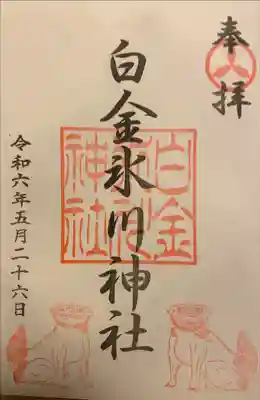 奉拝
白金氷川神社
令和六年五月二十六日
白金
氷川
神社